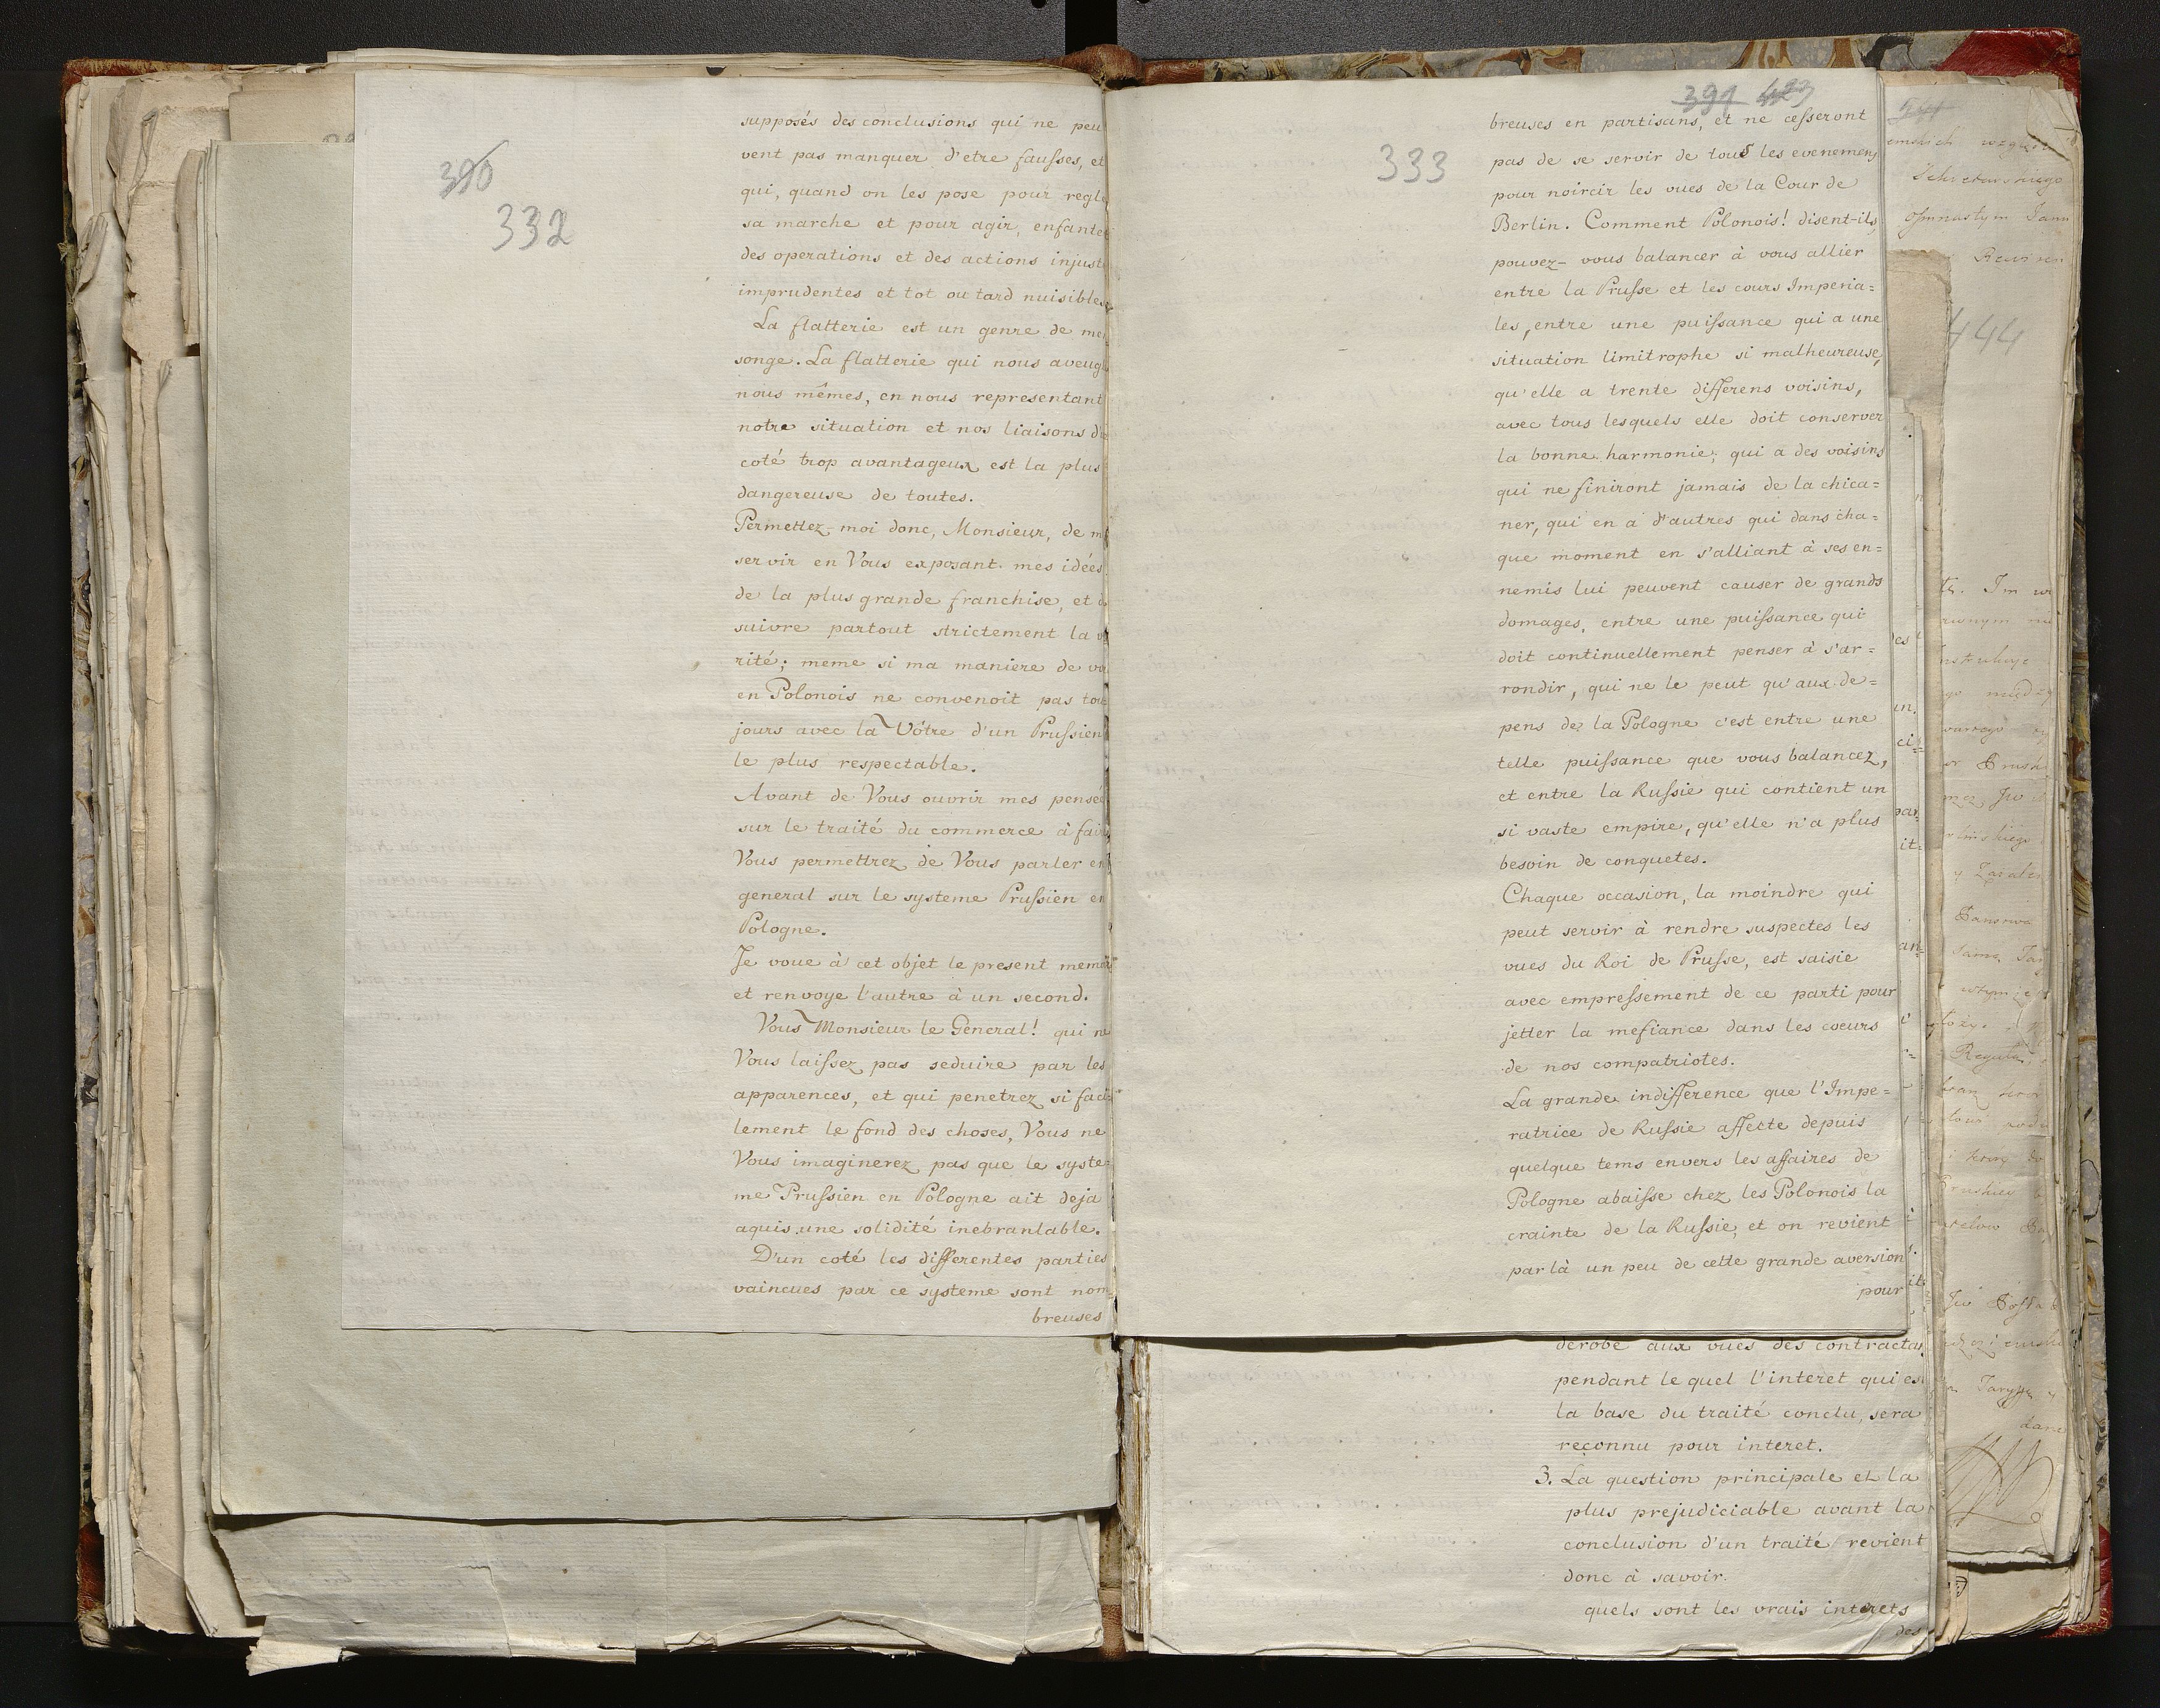 390
332
supposés des conclusions qui ne peu
vent pas manquer d'etre fausses, et
qui, quand on les pose pour regle
sa marche et pour agir, enfante
des operations et des actions injust
imprudentes et tot ou tard nuisibles
La flatterie est un genre de me
songe. La flatterie qui nous aveugl
nous mêmes, en nous representant
notre situation et nos liaisons d
coté trop avantageux est la plus
dangereuse de toutes.
Permettez-moi donc, Monsieur, de m
servir en Vous exposant mes idées
de la plus grande franchise, et d
suivre partout strictement la v
rité; meme si ma maniere de vo
en Polonois ne convenoit pas tou
jours avec la Vôtre d'un Prussien
le plus respectable.
Avant de Vous ouvrir mes pensée
sur le traité du commerce à fair
Vous permettrez de Vous parler en
general sur le systeme Prussien en
Pologne.
Je voue à cet objet le present memoi
et renvoye l'autre à un second.
Vous Monsieur le General! qui ne
Vous laissez pas seduire par les
apparences, et qui penetrez si faci=
lement le fond des choses, Vous ne
Vous imaginerez pas que le syste=
me Prussien en Pologne ait deja
aquis une solidité inebranlable.
D'un coté les differentes parties
vaincues par ce systeme sont nom=
breuses
391 423
333
breuses en partisans, et ne cesseront
pas de se servir de tous les evenemens
pour noircir les vues de la Cour de
Berlin. Comment Polonois! disent-ils,
pouvez-vous balancer à vous allier
entre la Prusse et les cours Imperia=
les, entre une puissance qui a une
situation limitrophe si malheureuse,
qu'elle a trente differens voisins,
avec tous lesquels elle doit conserver
la bonne harmonie; qui a des voisins
qui ne finiront jamais de la chica=
ner, qui en a d'autres qui dans cha=
que moment en s'alliant à ses en=
nemis lui peuvent causer de grands
domages, entre une puissance qui
doit continuellement penser à s'ar=
rondir, qui ne le peut qu'aux de=
pens de la Pologne c'est entre une
telle puissance que vous balancez,
et entre la Russie qui contient un
si vaste empire, qu'elle n'a plus
besoin de conquetes.
Chaque occasion, la moindre qui
peut servir à rendre suspectes les
vues du Roi de Prusse, est saisie
avec empressement de ce parti pour
jetter la mefiance dans les coeurs
de nos compatriotes.
La grande indifference que l'Impe=
ratrice de Russie affecte depuis
quelque tems envers les affaires de
Pologne abaisse chez les Polonois la
crainte de la Russie, et on revient
par là un peu de cette grande aversion
pour
derobe aux vues des contractas
pendant le quel l'interet qui es
la base du traité conclu, sera
reconnu pour interet.
3. La question principale et la
plus prejudiciable avant la
conclusion d'un traité revient
donc à savoir.
quels sont les vrais interets
des
444